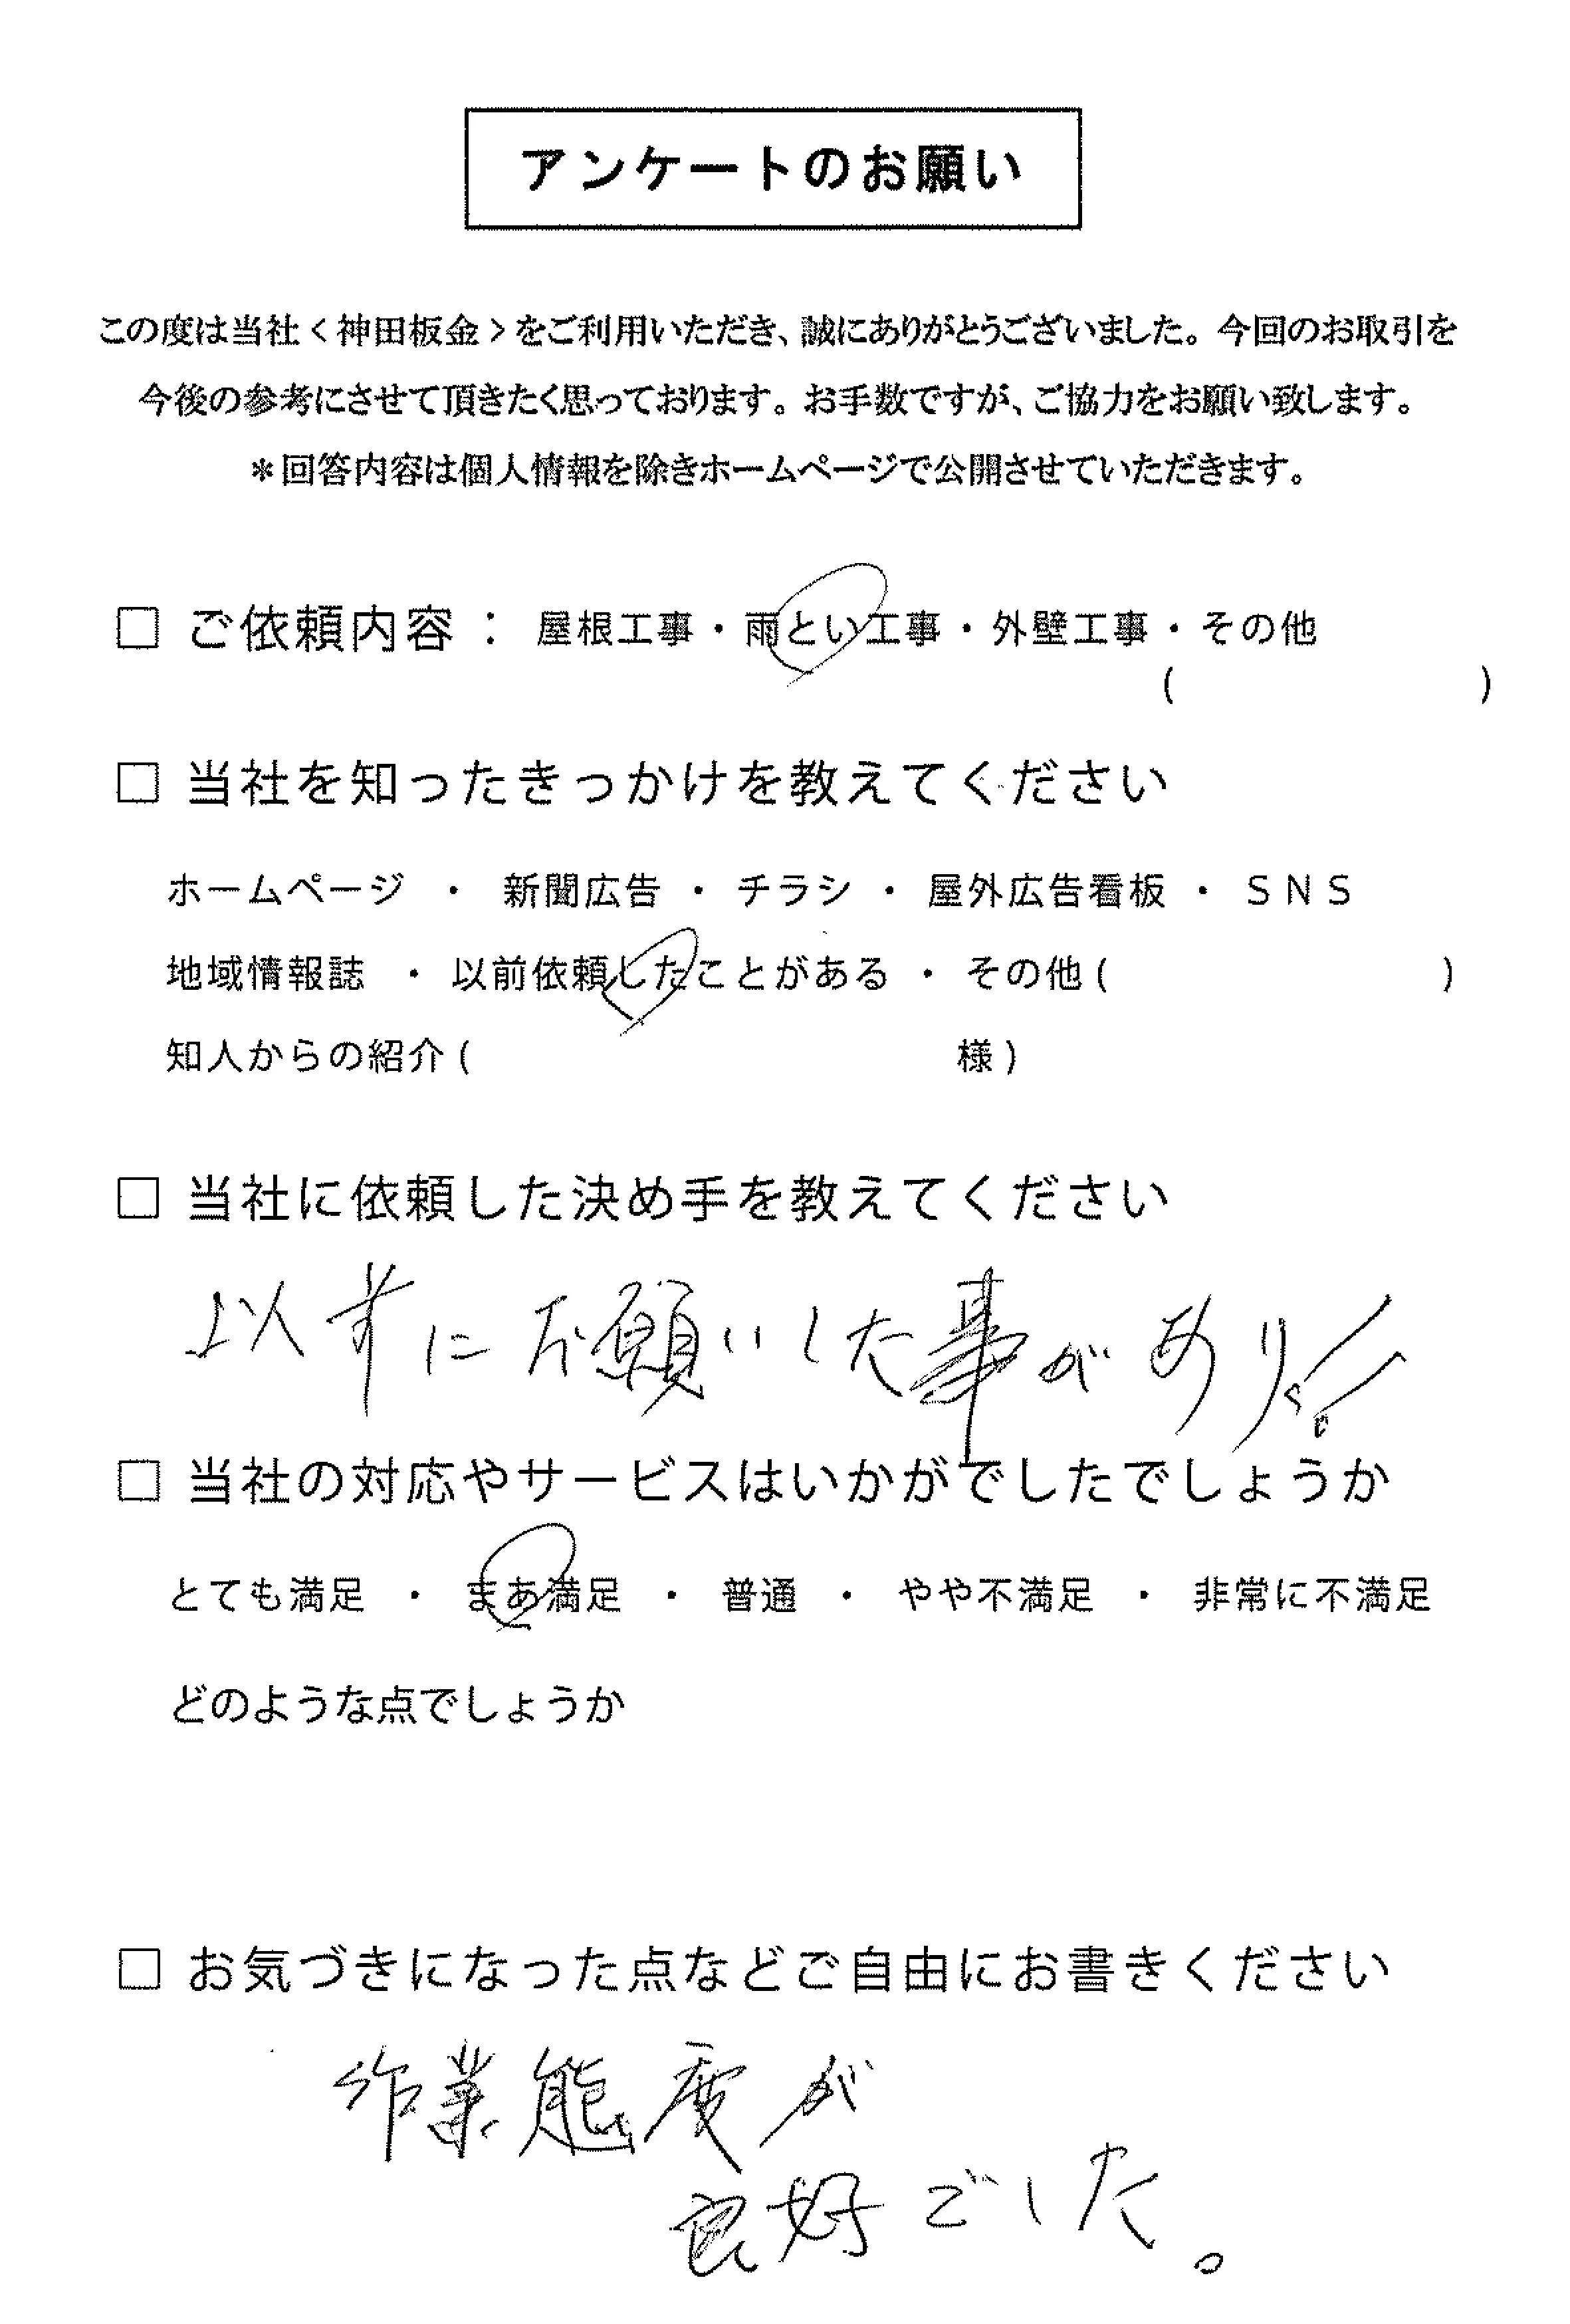 アンケートのお願い
この度は当社<神田板金>をご利用いただき、誠にありがとうございました。今回のお取引を
今後の参考にさせて頂きたく思っております。お手数ですが、ご協力をお願い致します。
＊回答内容は個人情報を除きホームページで公開させていただきます。
□ ご依頼内容： 屋根工事・雨とい工事・外壁工事・その他
( )
□ 当社を知ったきっかけを教えてください
ホームページ ・ 新聞広告 ・ チラシ ・ 屋外広告看板 ・ ＳＮＳ
地域情報誌 ・ 以前依頼したことがある ・ その他( )
知人からの紹介( 様)
□ 当社に依頼した決め手を教えてください
以前にお願いした事があり!!
□ 当社の対応やサービスはいかがでしたでしょうか
とても満足 ・ まあ満足 ・ 普通 ・ やや不満足 ・ 非常に不満足
どのような点でしょうか
□ お気づきになった点などご自由にお書きください
作業態度が
良好でした。